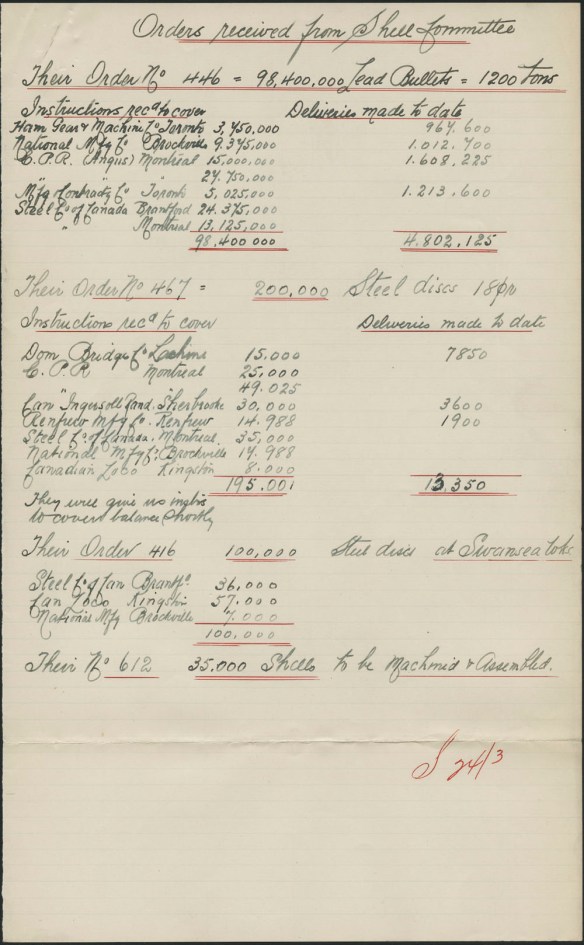 Orders received from Shell Committee
Their Order No 446 = 98,400,000 Lead Bullets = 1200 Tons
Instructions recd to cover Deliveries made to date
Ham Gear & Machine Co Toronto 3,750,000 967.600
National Mfg Co Brockville 9.375,000 1.012.700
C.P.R. (Angus) Montreal 15,000,000 1.608,225
" " 27,750,000
Mfg Contractg Co Toronto 5,025,000 1.213.600
Steel Co of Canada Brantford 24.375,000
" Montreal 13,125,000
98,400 000 4.802,125
Their Order No 467 = 200,000 Steel discs 18pr
Instructions recd to cover Deliveries made to date
Dom Bridge Co Lachine 15.000 7850
C.P.R Montreal 25,000
" 49.025
Can Ingersoll Rand. Sherbrooke 30,000 3600
Renfrew Mfg Co. Renfrew 14.988 1900
Steel Co of Canada. Montreal. 35,000
National Mfg Co. Brockville 17.988
Canadian Loco Kingston 8.000
195.001 13.350
They will give us
to cover balance shortly
Their Order 416 100,000 Steel discs at Swansea
Steel Co of Can Brantfd. 36,000
Can Loco Kingston 57.000
National Mfg Brockville 7.000
100,000
Their No 612 35,000 Shells to be Machind & Assembled.
24/3